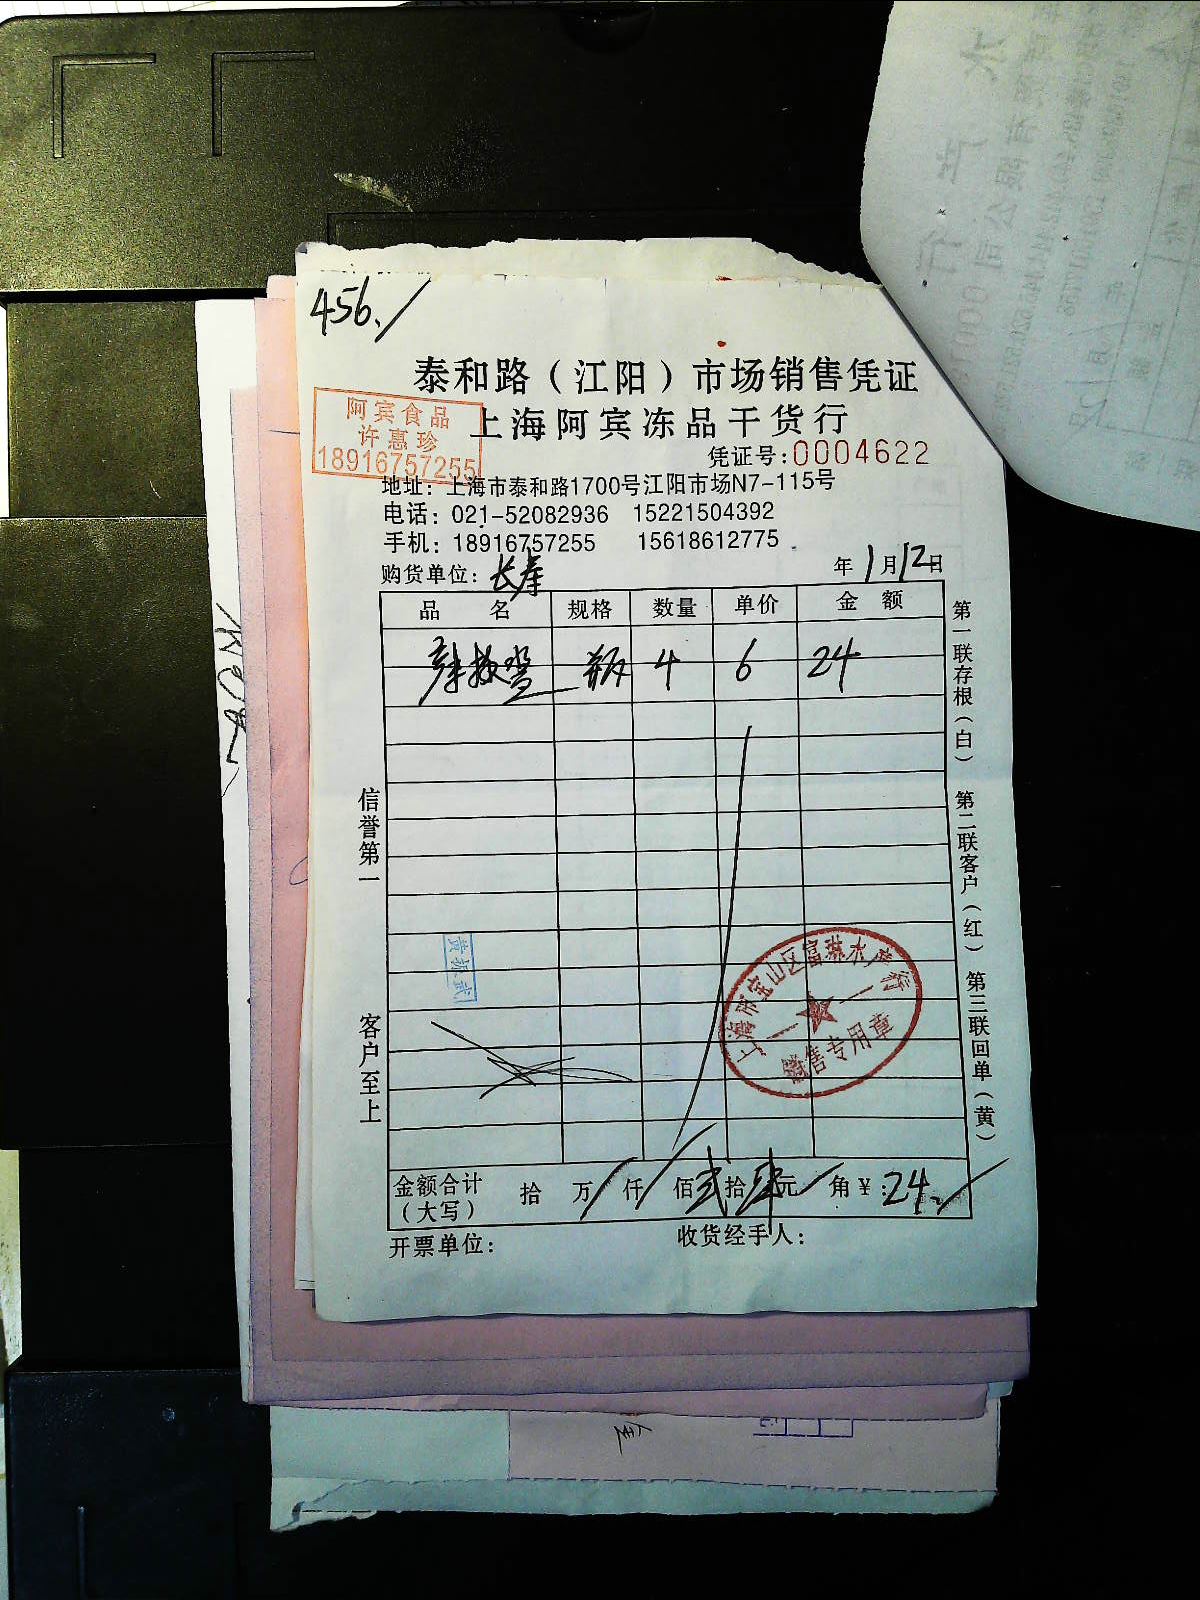 456./
泰和路（江阳）市场销售凭证
上海阿宾冻品干货行
阿宾食品
许惠珍
18916757255
凭证号:0004622
地址：上海市泰和路1700号江阳市场N7-115号
电话：021-52082936 15221504392
手机：18916757255 15618612775
购货单位：长寿 年1月12日
品名 规格 数量 单价 金额
辣椒酱 瓶 4 6 24
第一联存根（白） 第二联客户（红） 第三联回单（黄）
信誉第一 客户至上
黄振武
上海市宝山区富琳水产行
销售专用章
金额合计（大写） 拾 万 仟 佰 贰拾肆元 角 ¥:24.
开票单位： 收货经手人：